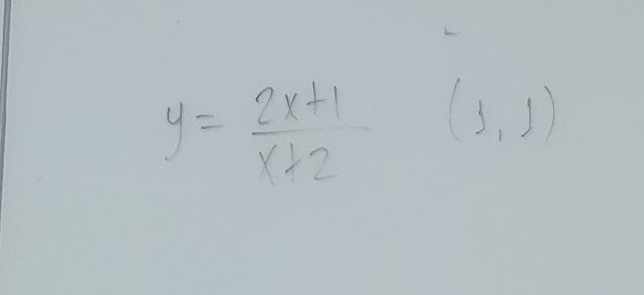 y = \frac{2x+1}{x+2} (1, 1)